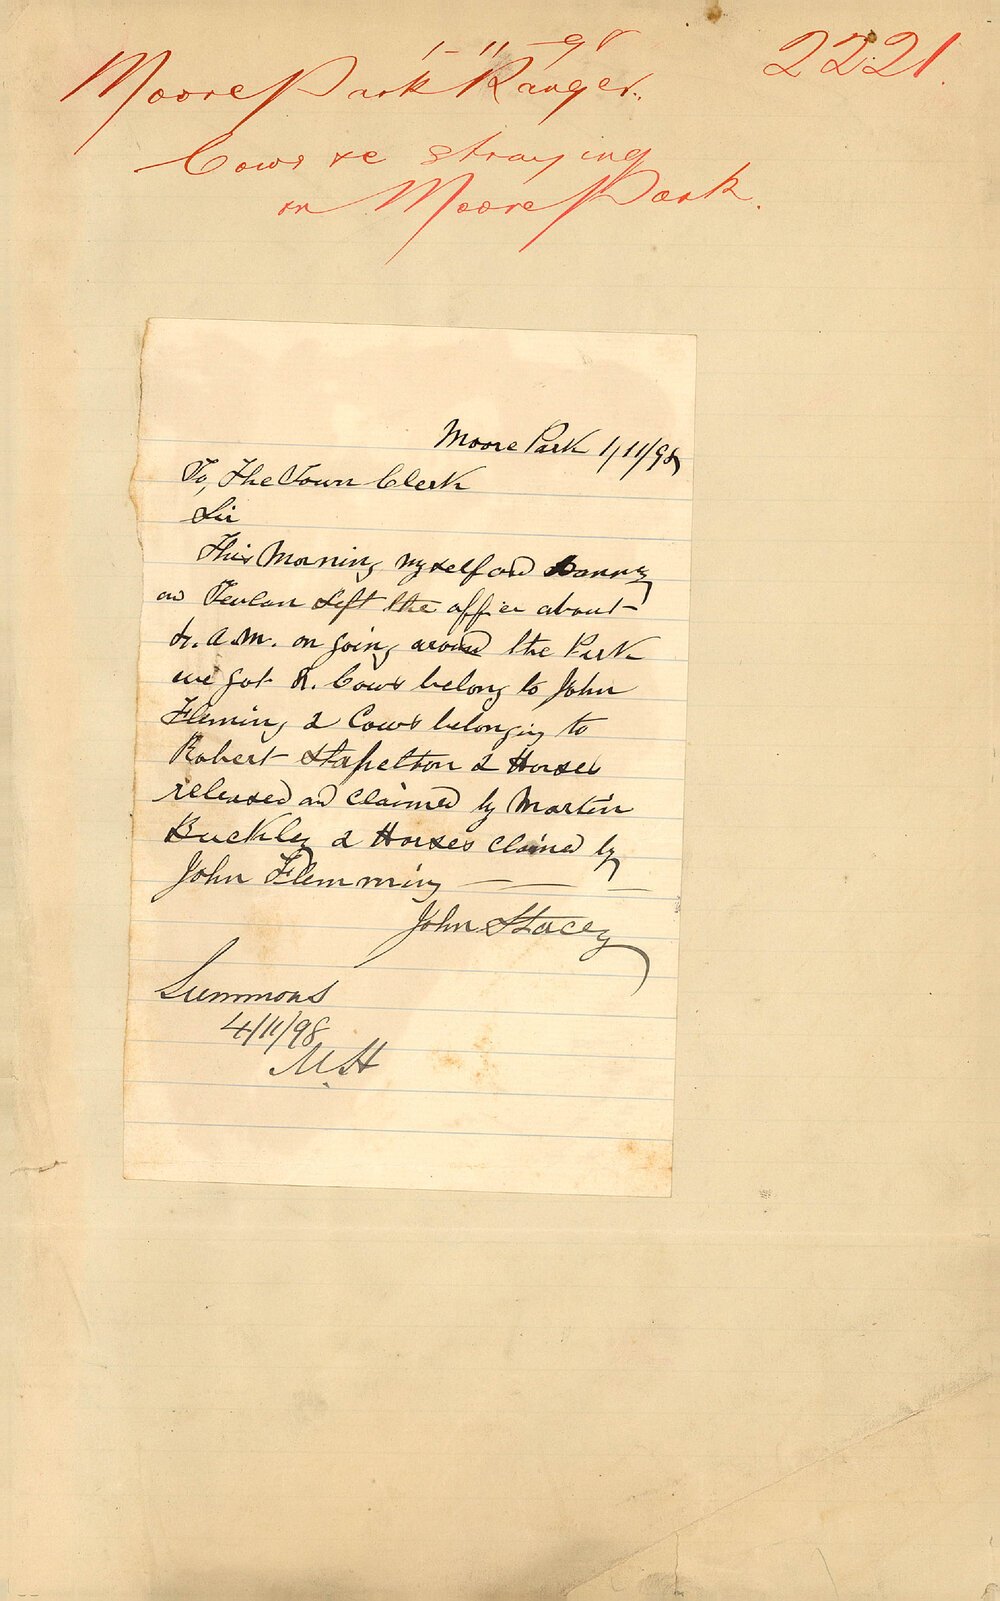 1-11-98
2221.
Moore Park Ranger.
Cows &c straying
on Moore Park.
Moore Park 1/11/98
To, The Town Clerk
Sir
This Morning myself and
and left the office about
a.m. on going around the Park
we got Cows belong to John
Fleming 2 Cows belonging to
Robert Stapelton 2 Horses
released and claimed by Martin
Buckley 2 Horses claimed by
John Flemming
John Stacey
Summons
4/11/98